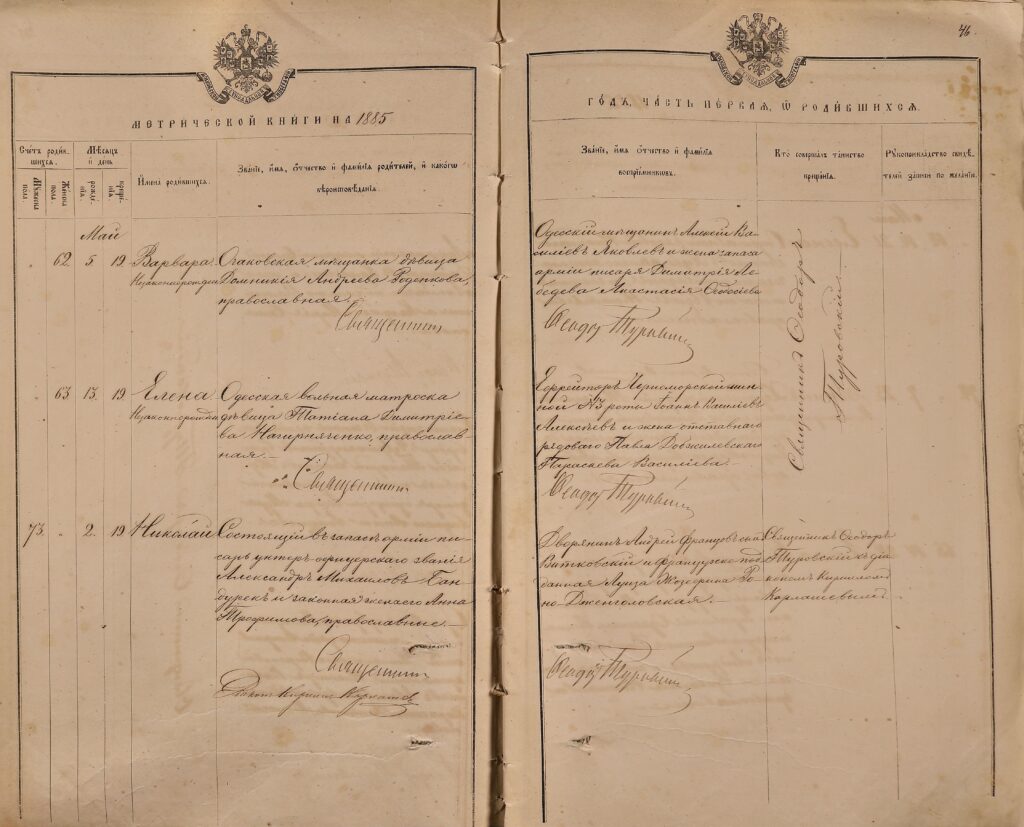 46.
МЕТРИЧЕСКОЙ КНИГИ НА 1885
ГОДЪ, ЧАСТЬ ПЕРВАЯ, Ѿ РОДИВШИХСЯ.
Счетъ родившихся.
Мужеска пола
Женска пола
Мѣсяцъ и день
рожденія.
крещенія.
Имена родившихся.
Званіе, имя, отчество и фамилія родителей, и какого
вѣроисповѣданія.
Званіе, имя отчество и фамилія
воспріемниковъ.
Кто совершалъ таинство
крещенія.
Рукоприкладство свидѣ-
телей записи по желанію.
Май
62. 5 19
Варвара
Незаконнорожден
Очаковская мѣщанка дѣвица
Домникія Андреева
православная.
Священник
Одесскій мѣщанинъ Алексѣй Ва-
силіевъ Яковлевъ и жена запаса
арміи писаря Димитрія Ле-
бедева Анастасія Ѳеодосіева
Ѳеодор Туровскій
Священникъ Ѳеодоръ
Туровскій
63 13. 19
Елена
Незаконнорожден
Одесская вольная матроска
дѣвица Татіана Димитріе-
ва Нагирняченко, православ-
ная.
Священник
Ефрейторъ Черноморской мин-
ной №3 роты Іоаннъ Василіевъ
Алексѣевъ и жена отставнаго
рядоваго Павла
Параскева Василіева.
Ѳеодор Туровскій
73. 2. 19
Николай
Состоящій въ запасѣ арміи пи-
сарь унтеръ офицерскаго званія
Александръ Михаиловъ Бан-
дурек и законная жена его Анна
Трофимова, православные.
Священник
Діаконъ Кириллъ
Дворянинъ Андрей Францовъ
Витковскій и французско под-
данная Луиза Жозефина
Священникъ Ѳеодоръ
Туровскій съ діа-
кономъ Кирилломъ
Карлашевымъ
Ѳеодор Туровскій